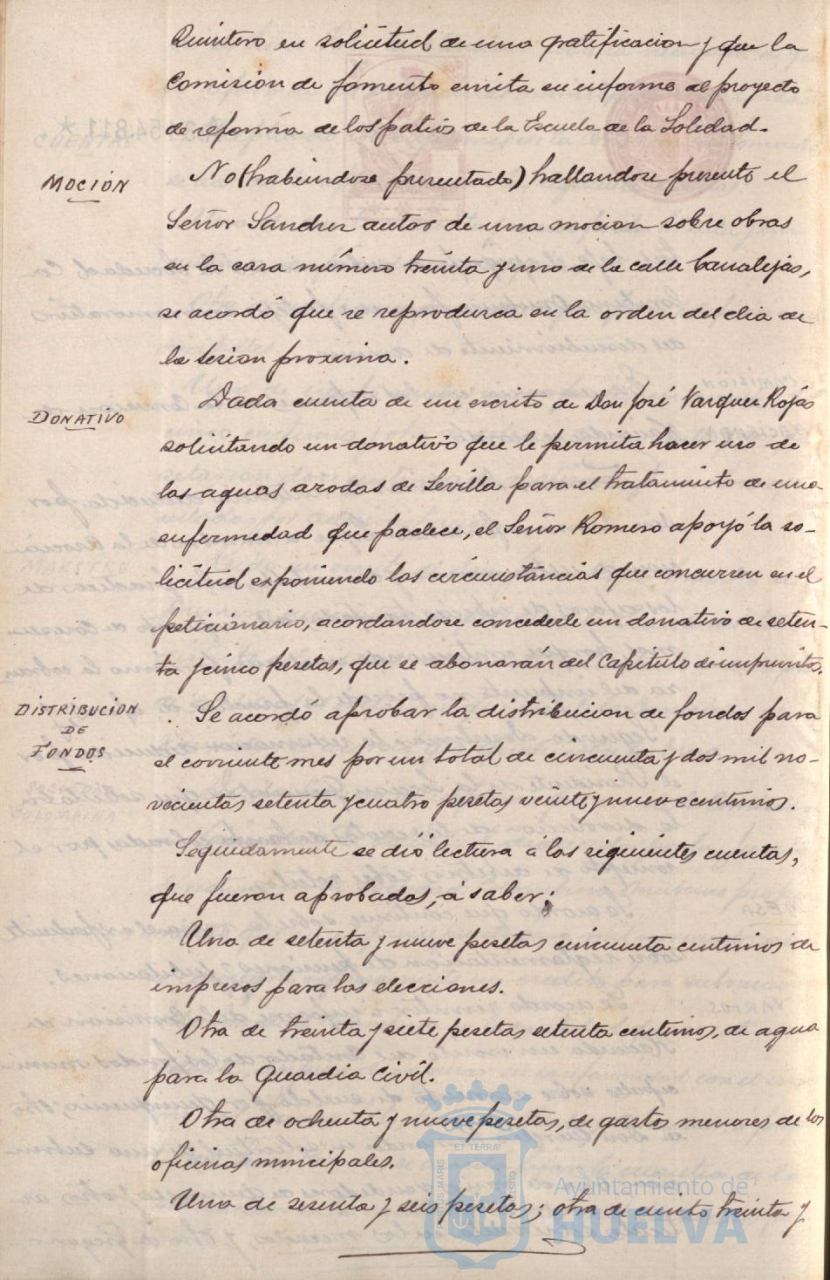 Quintero en solicitud de una gratificacion y que la
Comision de fomento emita su informe al proyecto
de reforma de los patios de la Escuela de la Soledad.
MOCIÓN
No (habiendose presentado) hallandose presente el
Señor Sanchez autor de una mocion sobre obras
en la casa número treinta y uno de la calle Canalejas,
se acordó que se reproduzca en la orden del dia de
la sesion proxima.
DONATIVO
Dada cuenta de un escrito de Don José Vazquez Rojas
solicitando un donativo que le permita hacer uso de
las aguas azodas de Sevilla para el tratamiento de una
enfermedad que padece, el Señor Romero apoyó la so-
licitud exponiendo las circunstancias que concurren en el
peticionario, acordandose concederle un donativo de seten-
ta y cinco pesetas, que se abonarán del Capitulo de imprevistos.
DISTRIBUCION
DE
FONDOS
Se acordó aprobar la distribucion de fondos para
el corriente mes por un total de cincuenta y dos mil no-
vecientas setenta y cuatro pesetas veinte y nueve centimos.
Seguidamente se dió lectura á las siguientes cuentas,
que fueron aprobadas, á saber:
Una de setenta y nueve pesetas cincuenta centimos de
impresos para las elecciones.
Otra de treinta y siete pesetas setenta centimos, de agua
para la Guardia Civil.
Otra de ochenta y nueve pesetas, de gastos menores de las
oficinas municipales.
Una de sesenta y seis pesetas; otra de ciento treinta y
Ayuntamiento de
HUELVA